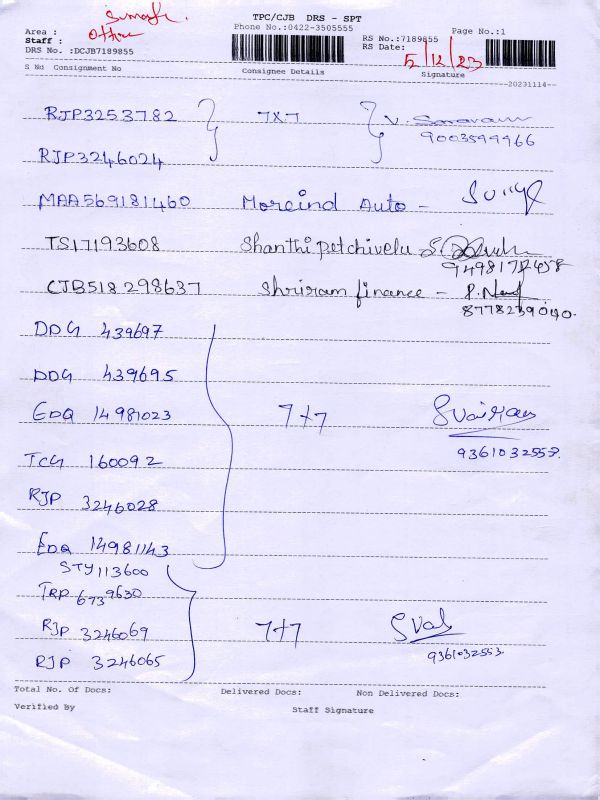 TPC/CJB DRS - SPT
Phone No.:0422-3505555
Area :
Staff : Office
DRS No. :DCJB7189855
RS No.:7189855
Page No.:1
RS Date: 5/12/23
S No Consignment No Consignee Details Signature
20231114
RJP3253782 7x7 V. Saravanan
9003599466
RJP3246024
MAA569181460 Moreind Auto -
TS17193608 Shanthi petchivelu
CJB518298637 Shriram finance -
8778239040.
DDG 439697
DDG 439695
EDQ 14981023 7+7
TCG 160092 9361032553.
RJP 3246028
EDQ 14981143
STY113600
TRP 6739630
RJP 3246069 7+7
9361032553.
RJP 3246065
Total No. Of Docs: Delivered Docs: Non Delivered Docs:
Verified By Staff Signature